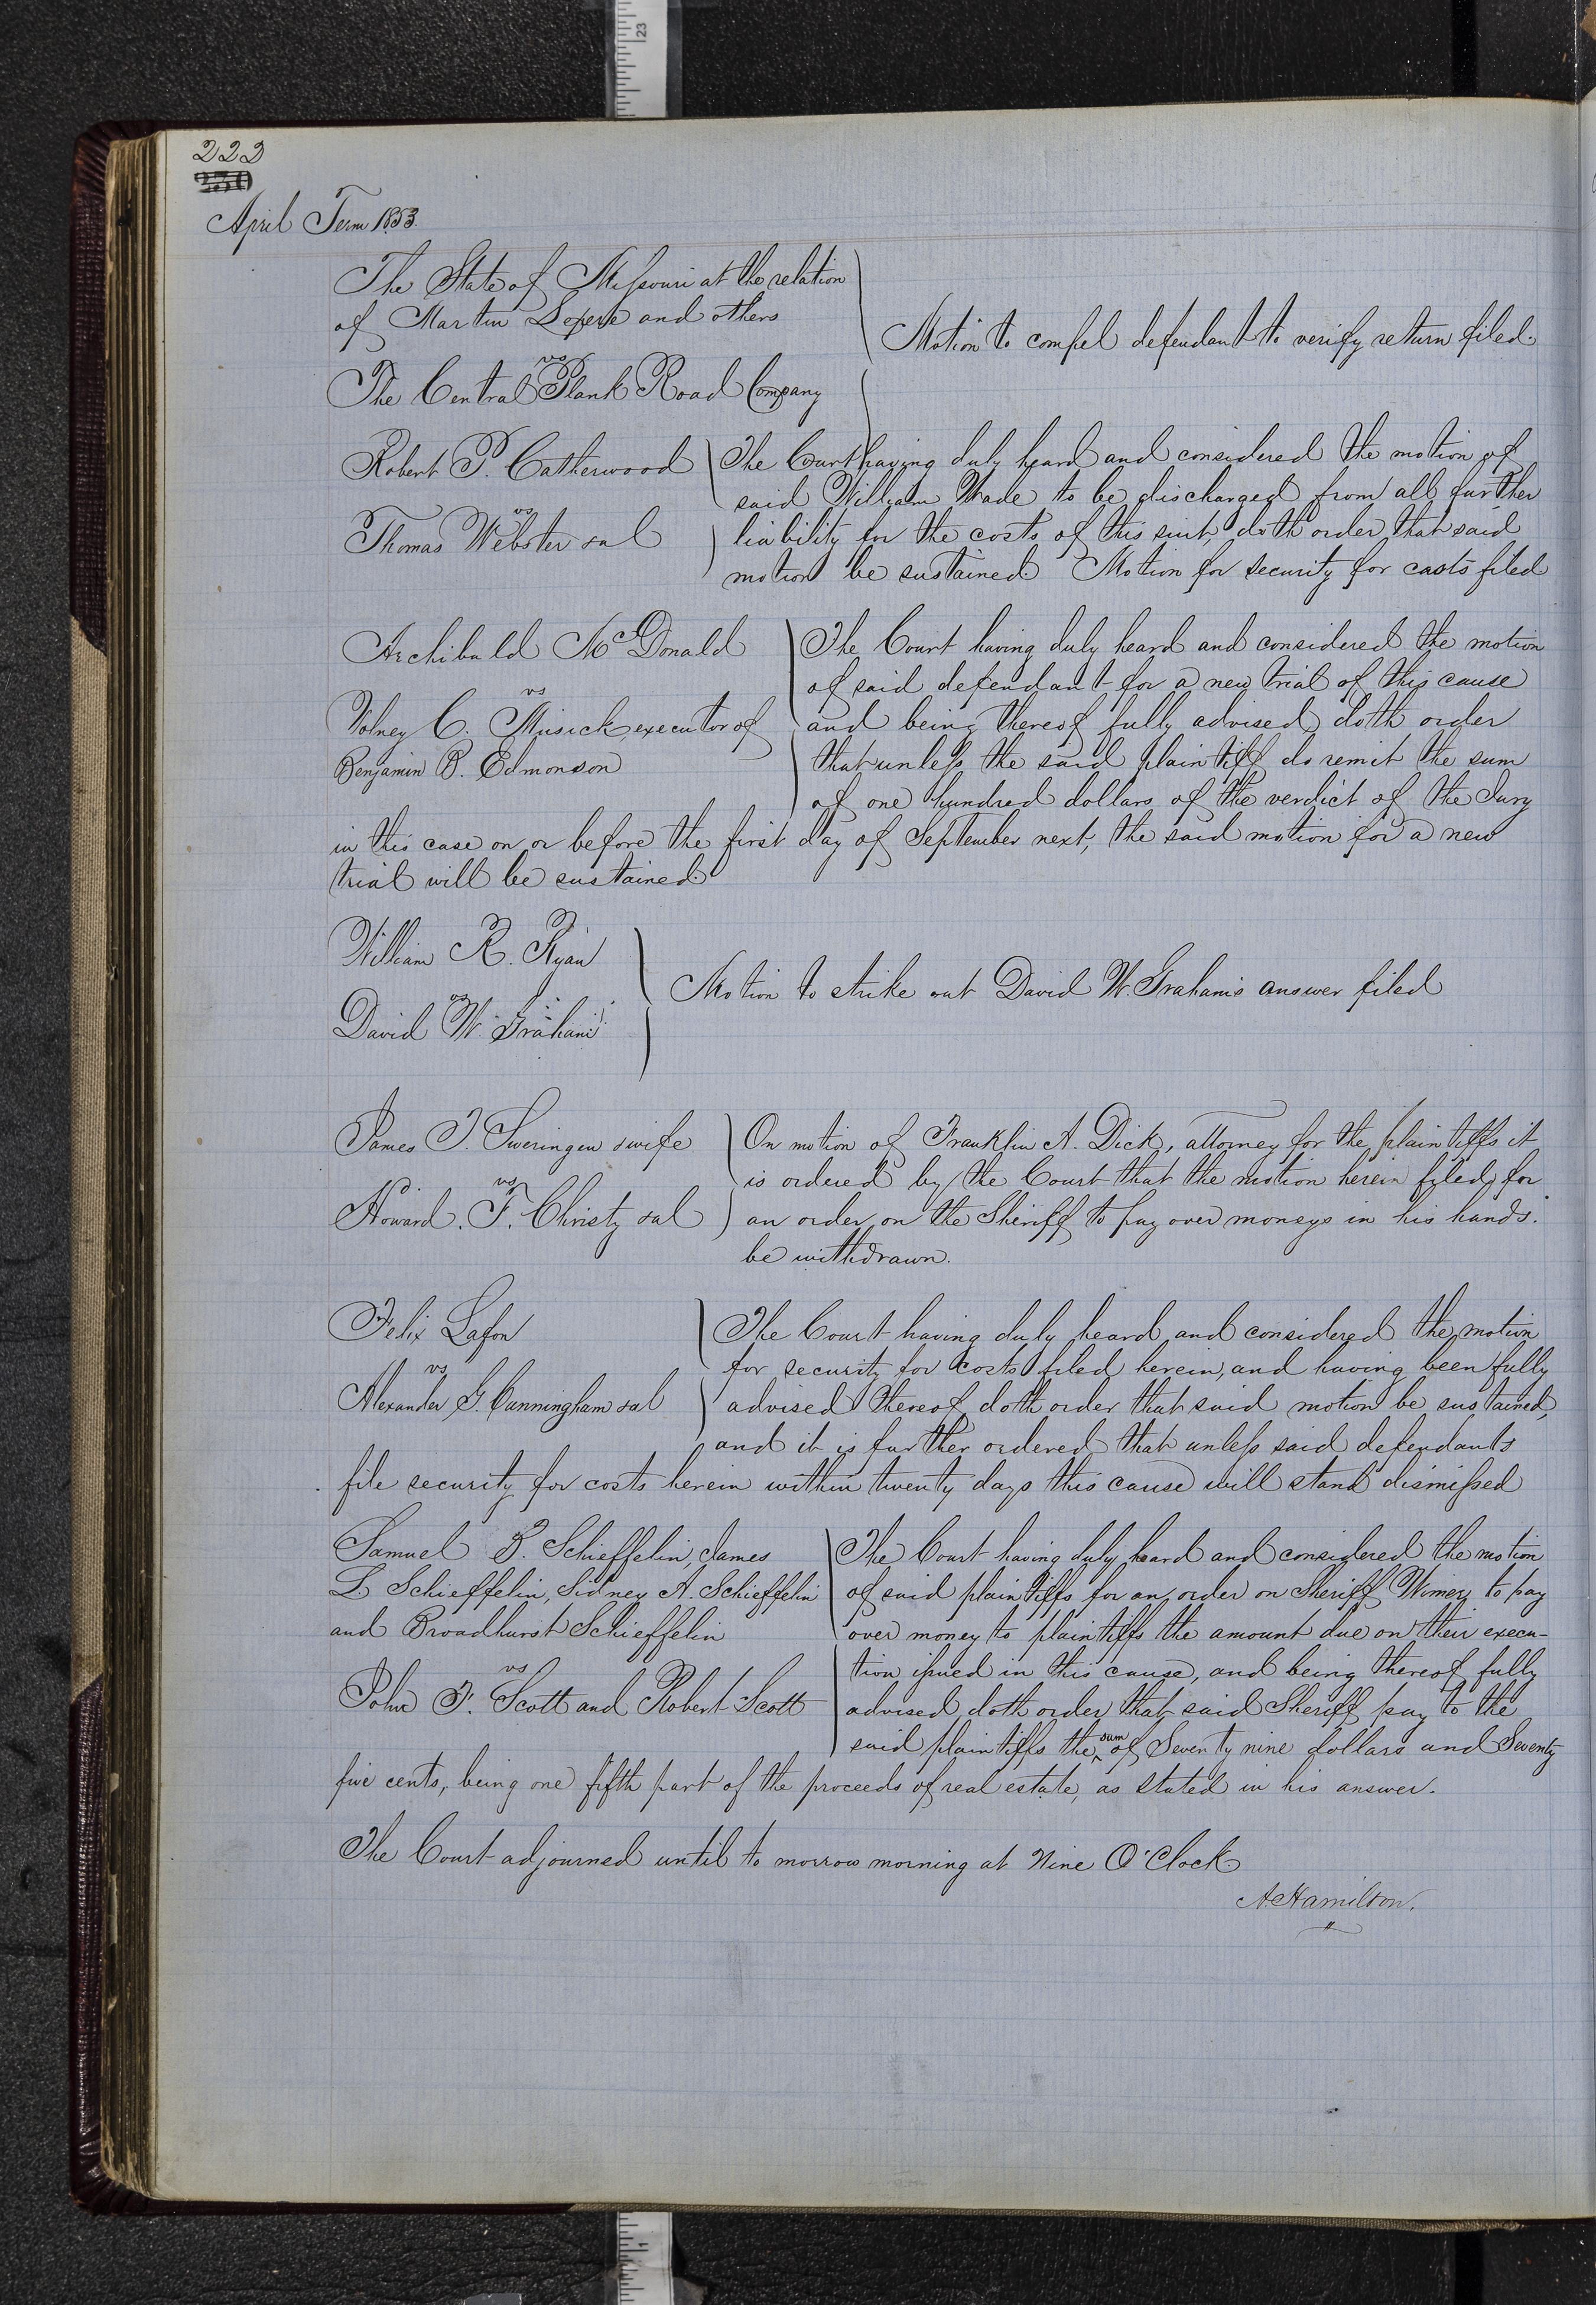 23
222
250
April Term 1853.
The State of Missouri at the relation
of Martin Lepere and others
vs
The Central Plank Road Company
Motion to compel defendant to verify return filed.
Robert P. Catherwood
vs
Thomas Webster & al
The Court having duly heard and considered the motion of
said William Wade to be discharged from all further
liability for the costs of this suit, doth order that said
motion be sustained. Motion for security for costs filed
Archibald McDonald
vs
Volney C. Musick, executor of
Benjamin B. Edmonson
The Court having duly heard and considered the motion
of said defendant for a new trial of this cause
and being thereof fully advised, doth order
that unless the said plaintiff do remit the sum
of one hundred dollars of the verdict of the Jury
in this case on or before the first day of September next, the said motion for a new
trial will be sustained.
William R. Ryan
vs
David W. Graham
Motion to strike out David W. Graham's answer filed
James T. Sweringen & wife
vs
Howard. F. Christy & al
On motion of Franklin A. Dick, attorney for the plaintiffs it
is ordered by the Court that the motion herein filed, for
an order on the Sheriff to pay over moneys in his hands.
be withdrawn.
Felix Lafon
vs
Alexander G. Cunningham & al
The Court having duly heard and considered the motion
for security for costs filed herein, and having been fully
advised thereof, doth order that said motion be sustained,
and it is further ordered that unless said defendants
file security for costs herein within twenty days this cause will stand dismissed
Samuel B. Schieffelin, James
L. Schieffelin, Sidney A. Schieffelin
and Broadhurst Schieffelin
vs
John F. Scott and Robert Scott
The Court having duly heard and considered the motion
of said plaintiffs for an order on Sheriff Wimer, to pay
over money to plaintiffs the amount due on their execu-
tion issued in this cause, and being thereof fully
advised, doth order that said Sheriff pay to the
said plaintiffs the sum of, Seventy nine dollars and Seventy
five cents, being one fifth part of the proceeds of real estate, as stated in his answer.
The Court adjourned until to morrow morning at Nine O'Clock
A. Hamilton.
1